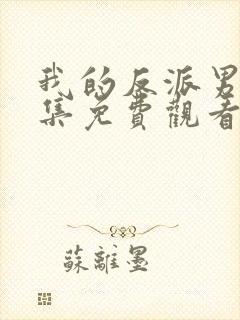 我的反派男
集免費觀看
蘇離墨